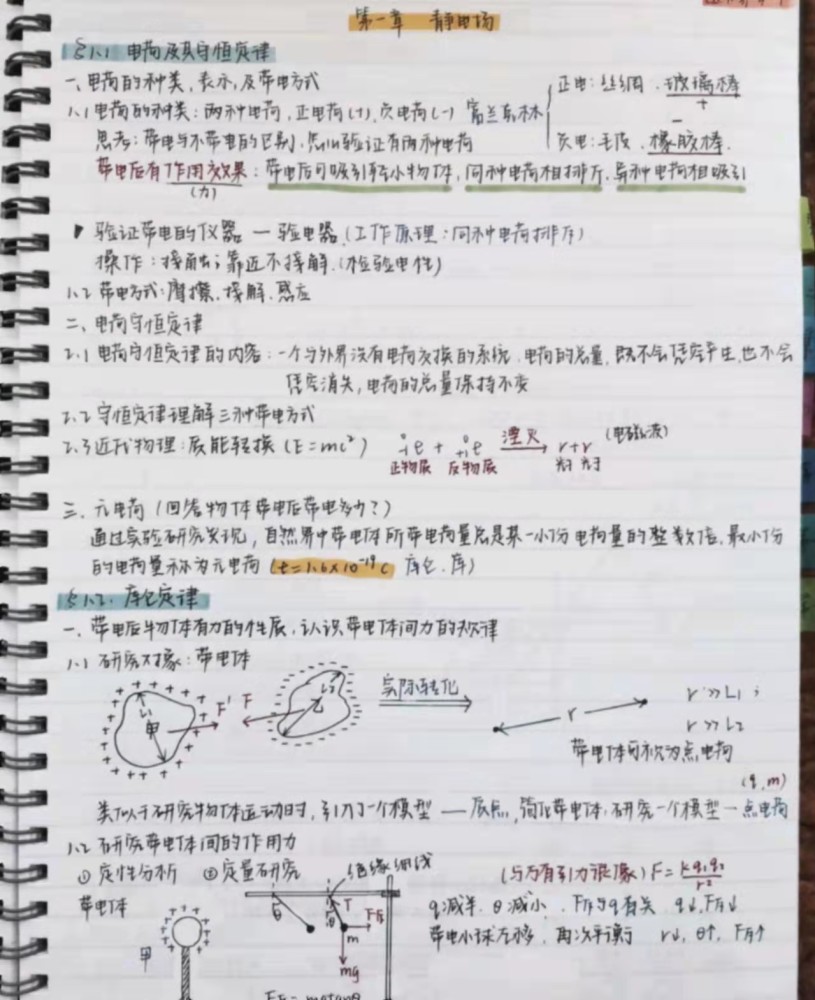 第一章 静电场
§1.1 电荷及其守恒定律
一、电荷的种类、表示,及带电方式
1.1 电荷的种类:两种电荷,正电荷(+),负电荷(-) 富兰克林
正电:丝绸、玻璃棒
+
思考:带电与不带电的区别,怎么验证有两种电荷
-
负电:毛皮、橡胶棒
带电后有作用效果:带电后可吸引轻小物体,同种电荷相排斥,异种电荷相吸引
(力)
验证带电的仪器 — 验电器(工作原理:同种电荷排斥)
操作:接触;靠近不接触(检验电性)
1.2 带电方式:摩擦、接触、感应
二、电荷守恒定律
2.1 电荷守恒定律的内容:一个与外界没有电荷交换的系统,电荷的总量,既不会凭空产生,也不会
凭空消失,电荷的总量保持不变
2.2 守恒定律理解三种带电方式
2.3 近代物理:质能转换(E=mc²) ⁰₋₁e + ⁰₊₁e 湮灭→ r+r (电磁波)
正物质 反物质 光子 光子
三、元电荷(回答物体带电后带电多少?)
通过实验研究发现,自然界中带电体所带电荷量总是某一小份电荷量的整数倍,最小份
的电荷量称为元电荷(e=1.6×10⁻¹⁹C 库仑、库)
§1.2. 库仑定律
一、带电后物体有力的性质,认识带电体间力的规律
1.1 研究对象:带电体
L₁ 甲 F' F L₂ 乙 实际转化 r r>>L₁;
r>>L₂
带电体可视为点电荷
(q,m)
类似于研究物体运动时,引入了一个模型 — 质点,简化带电体,研究一个模型—点电荷
1.2 研究带电体间的作用力
①定性分析 ②定量研究 绝缘细线 (与万有引力很像) F=kq₁q₂/r²
带电体 θ θ T F斥 m q减半,θ减小,F斥与q有关,q↓,F斥↓
甲 mg 带电小球左移,再次平衡 r↓,θ↑,F斥↑
F斥=mgtanθ